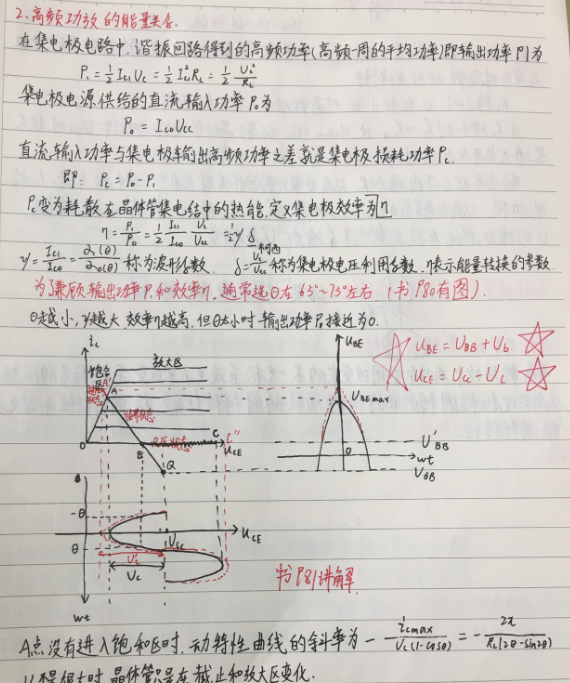 2.高频功放的能量关系.
在集电极电路中,谐振回路得到的高频功率(高频一周的平均功率)即输出功率P1为
P₁=½Ic₁Uc=½I²c₁RL=½ Uc²/RL
集电极电源供给的直流输入功率P₀为
P₀=Ic₀Ucc
直流输入功率与集电极输出高频功率之差就是集电极损耗功率Pc.
即: Pc=P₀-P₁
Pc变为耗散在晶体管集电结中的热能.定义集电极效率为η
η=P₁/P₀=½ Ic₁/Ic₀ Uc/Ucc=½γδ
γ=Ic₁/Ic₀=α₁(θ)/α₀(θ)称为波形系数. δ=Uc/Ucc称为集电极电压利用系数.η表示能量转换的参数.
为了兼顾输出功率P₁和效率η,通常选θ在65°~75°左右(书P80有图).
θ越小,γ越大,效率η越高,但θ太小时输出功率P₁接近为0.
ic
放大区
饱和区
A'
A
临界状态
欠压状态
B
C
L''
uCE
Q
0
uBE
UBEmax
U'BB
wt
UBB
0
uBE=UBB+Ub
uCE=Ucc-Uc
-θ
θ
Ucc
uCE
U'c
Uc
wt
书P81讲解
A点没有进入饱和区时,动特性曲线的斜率为 - icmax/Uc(1-cosθ) = - 2π/RL(2θ-sin2θ)
很大时,晶体管只在截止和放大区变化.